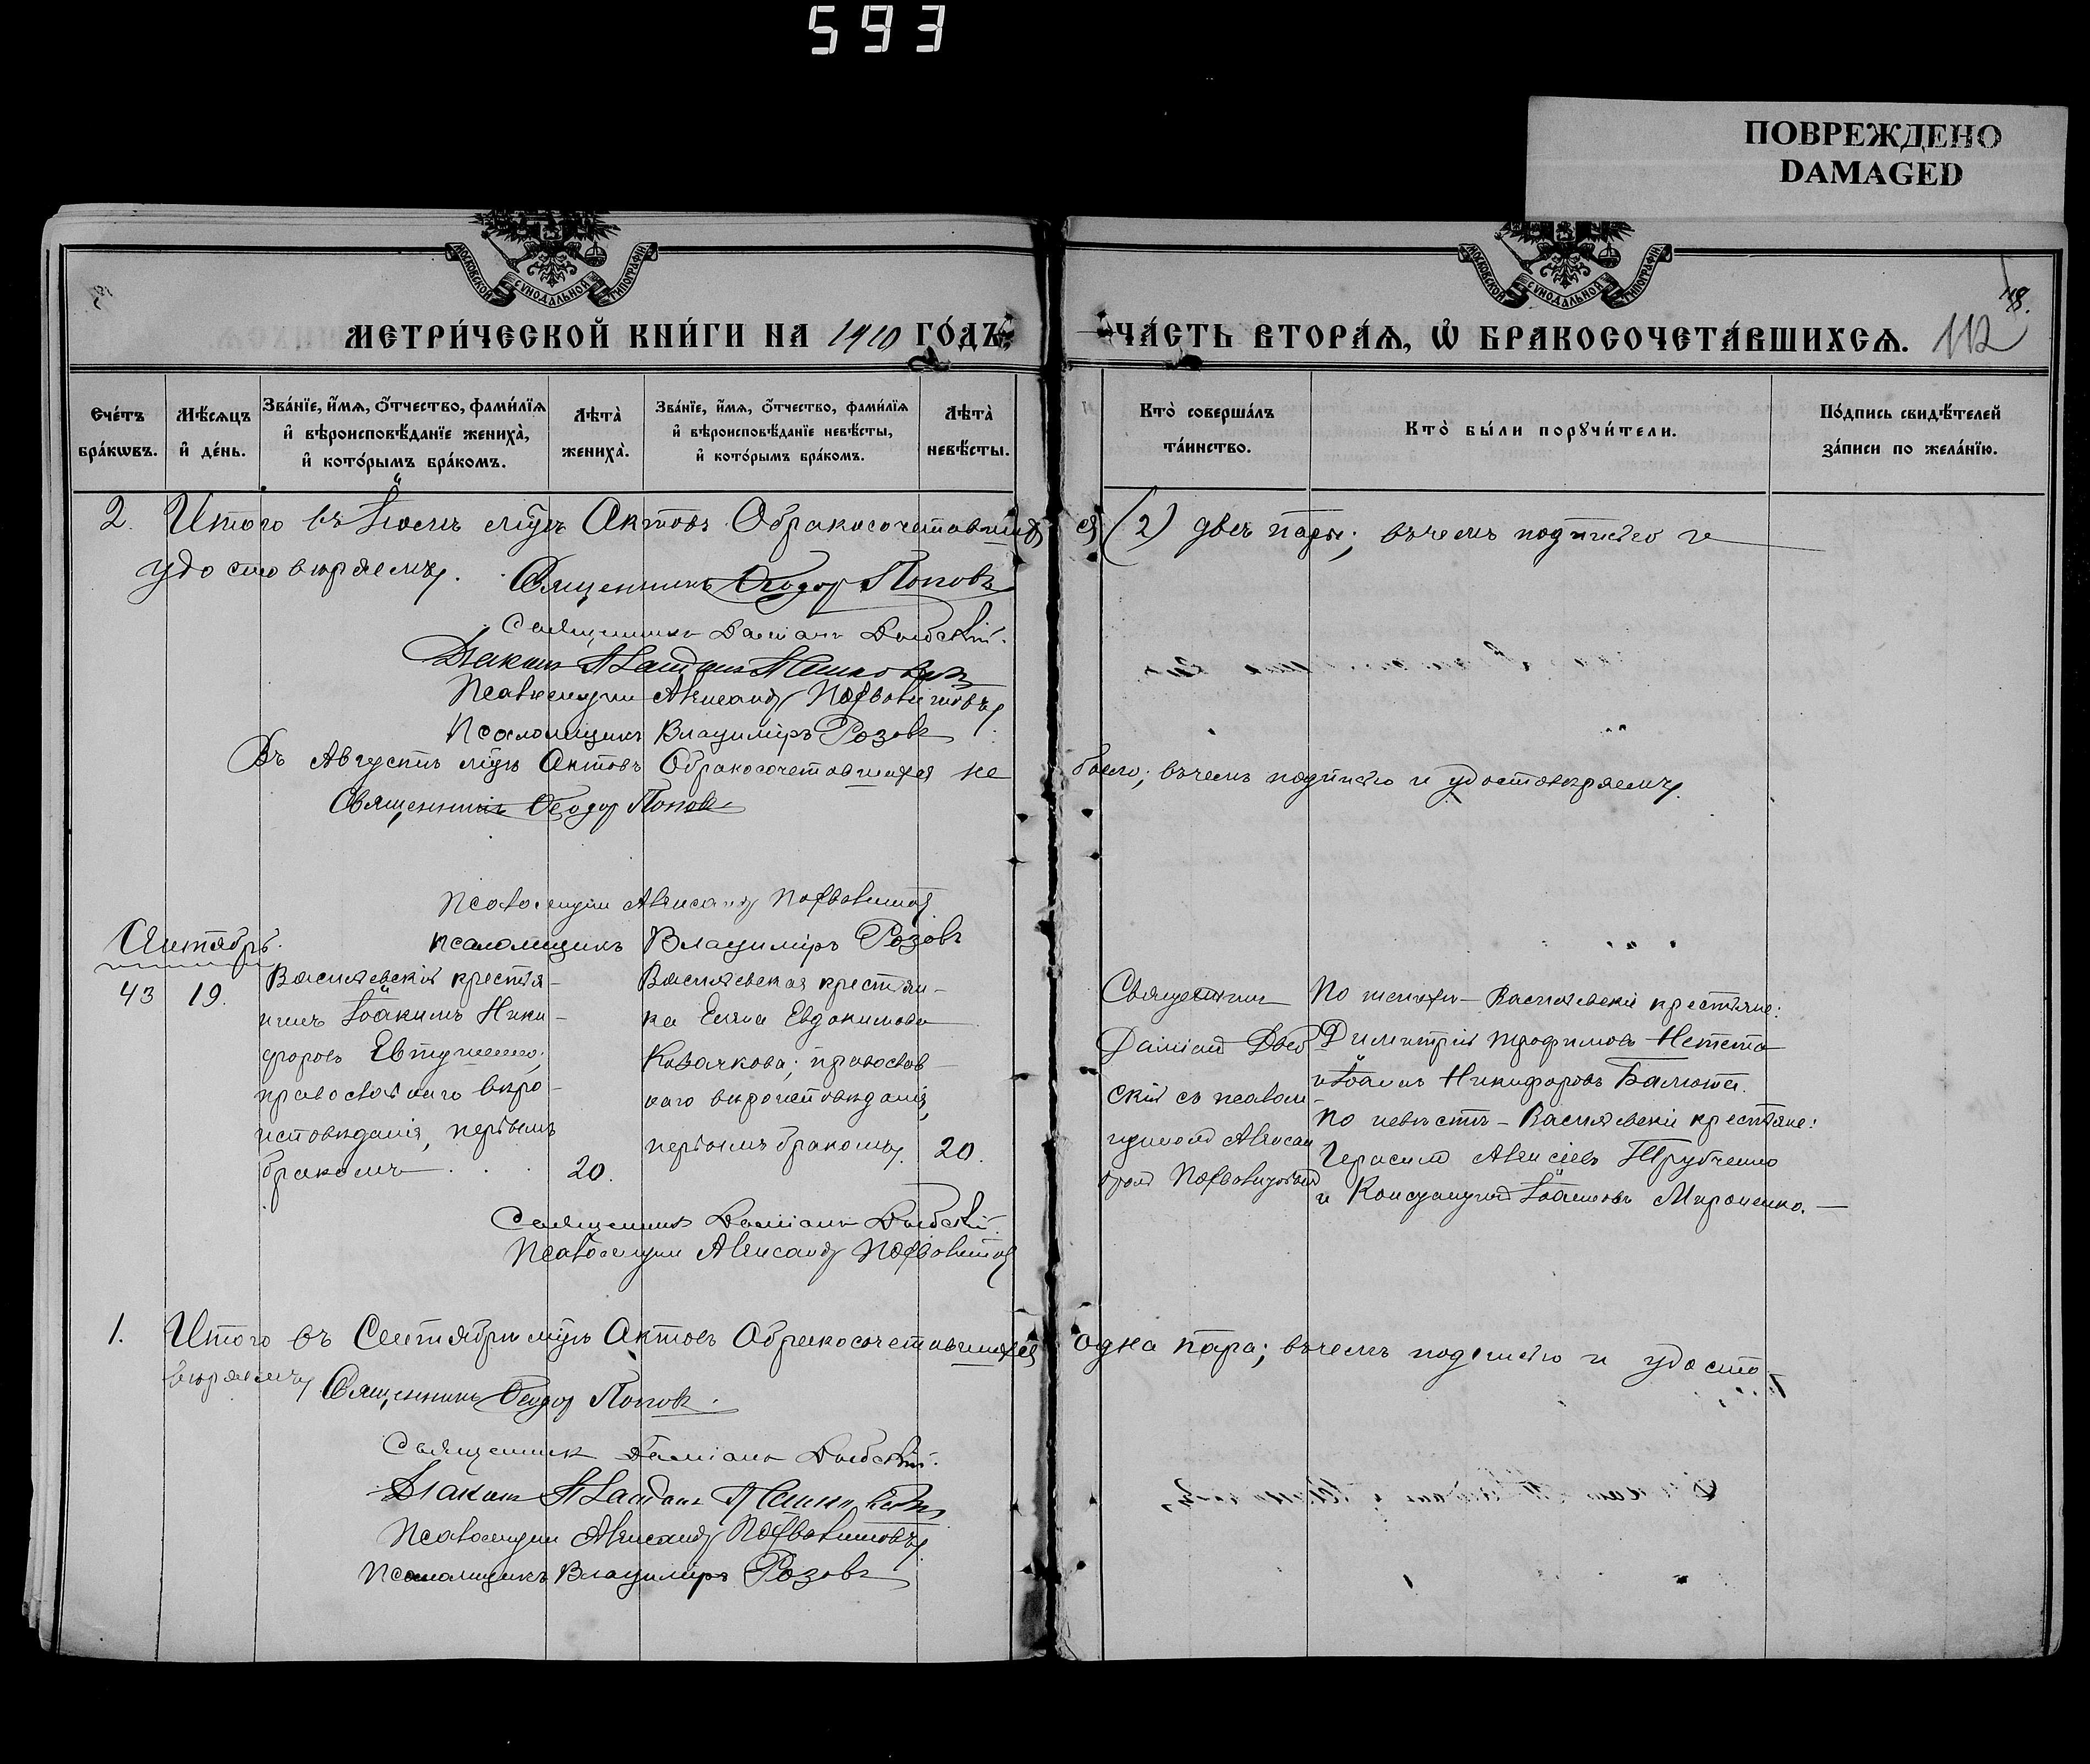 593
ПОВРЕЖДЕНО
DAMAGED
МОСКОВСКОЙ СУНОДАЛЬНОЙ ТИПОГРАФІИ
МОСКОВСКОЙ СУНОДАЛЬНОЙ ТИПОГРАФІИ
МЕТРИ́ЧЕСКОЙ КНИ́ГИ НА 1910 ГО́ДЪ.
ЧА́СТЬ ВТОРА́Ѧ, Ѽ БРАКОСОЧЕТА́ВШИХСѦ. 112
Сче́тъ бра́кѡвъ.
Мѣ́сяцъ и҆ де́нь.
Зва́нїе, и҆́мѧ, ѻ҆́тчество, фами́лїѧ и҆ вѣроисповѣ́данїе жениха̀, и҆ кото́рымъ бра́комъ.
Лѣта̀ жениха̀.
Зва́нїе, и҆́мѧ, ѻ҆́тчество, фами́лїѧ и҆ вѣроисповѣ́данїе невѣ́сты, и҆ кото́рымъ бра́комъ.
Лѣта̀ невѣ́сты.
Кто̀ соверша́лъ та́инство.
Кто̀ бы́ли порꙋчи́тели.
По́дпись свидѣ́телей за́писи по жела́нїю.
2. Итого въ Іюлѣ мцѣ Актовъ О бракосочетавших
ся (2) двѣ пары; въ чемъ подписью и
удостовѣряемъ. Священникъ Ѳеодоръ Поповъ
Священникъ Даміанъ
Діаконъ
Псаломщикъ Александръ
Псаломщикъ Владиміръ Розовъ
Въ Августѣ мцѣ Актовъ О бракосочетавшихся не
было; въ чемъ подписью и удостовѣряемъ.
Священникъ Ѳеодоръ Поповъ
Псаломщикъ Александръ
Псаломщикъ Владиміръ Розовъ
Сентябрь.
43 19.
Васильевскій крестья-
нинъ Іоакимъ Ники-
форовъ Евтушенко;
православнаго вѣро-
исповѣданія, первымъ
бракомъ 20.
Васильевская крестьян-
ка Елена Евдокимова
Казачкова; православ-
наго вѣроисповѣданія,
первымъ бракомъ. 20.
Священникъ
Даміанъ
скій съ псалом-
щикомъ Алексан
дромъ
По женихѣ - Васильевскіе крестьяне:
Димитрій Трофимовъ
и Іоаннъ Никифоровъ
По невѣстѣ - Васильевскіе крестьяне:
Герасимъ Алексіевъ Трубченко
и Іоанновъ Мироненко.
Священникъ Даміанъ
Псаломщикъ Александръ
1. Итого въ Сентябрѣ мцѣ Актовъ О бракосочетавшихся
одна пара; въ чемъ подписью и удосто
вѣряемъ. Священникъ Ѳеодоръ Поповъ.
Священникъ Даміанъ
Діаконъ
Псаломщикъ Александръ
Псаломщикъ Владиміръ Розовъ